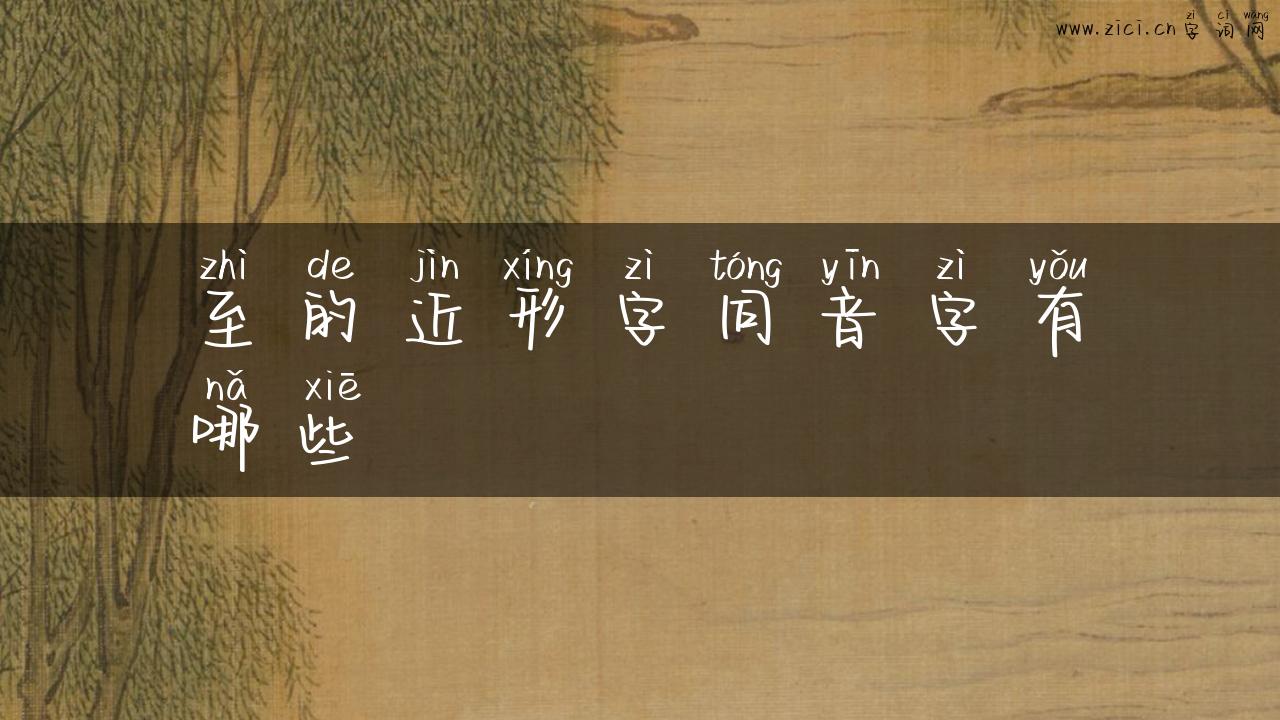 zì cí wǎng
www.zici.cn 字 词 网
zhì de jìn xíng zì tóng yīn zì yǒu
至 的 近 形 字 同 音 字 有
nǎ xiē
哪 些